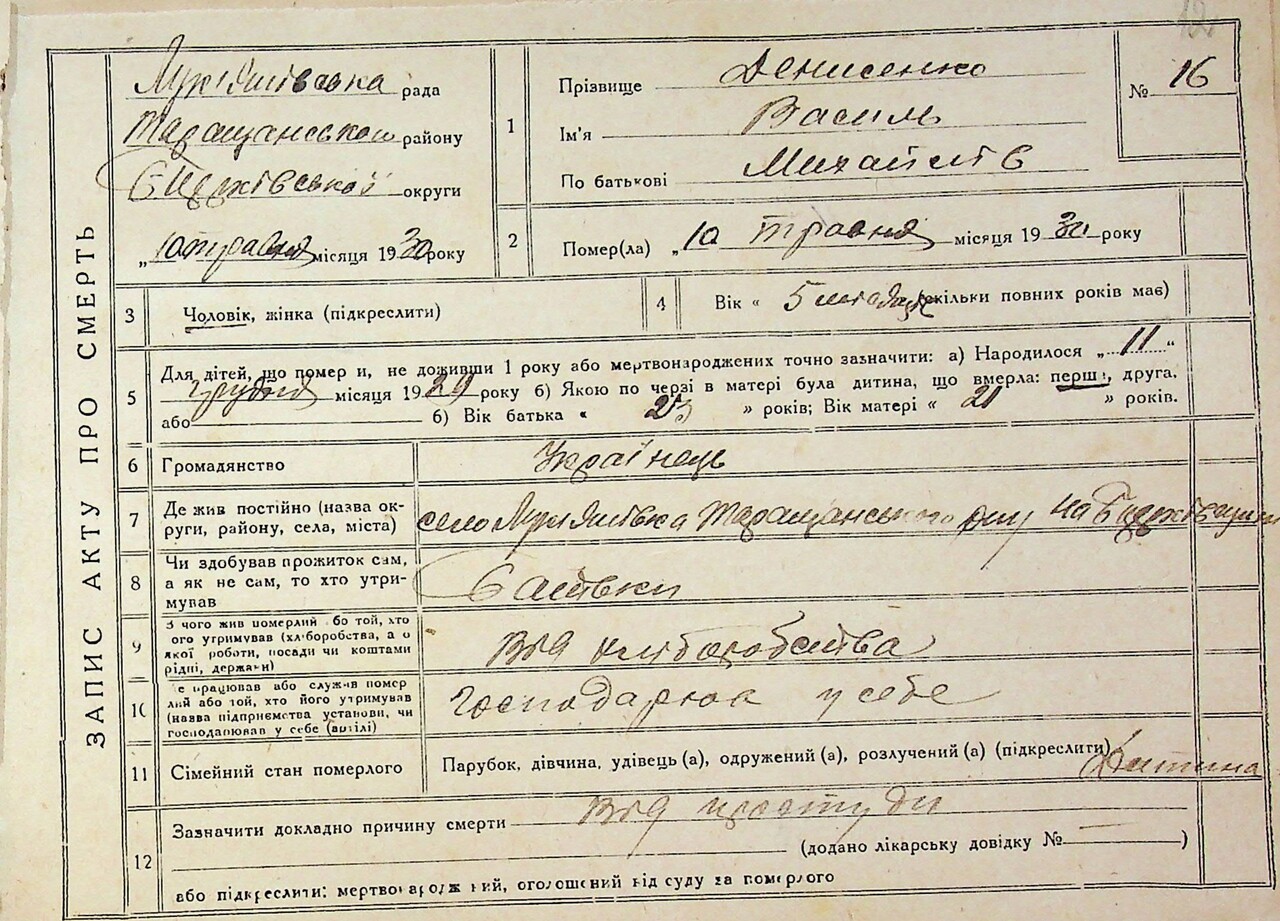 12
ЗАПИС АКТУ ПРО СМЕРТЬ
Лук'янівська рада
Таращанського району
Б Церківської округи
„10 травня місяця 1930 року
1
Прізвище Денисенко
Ім'я Василь
По батькові Михайлів
№ 16
2
Помер(ла) „10 травня місяця 1930 року
3
Чоловік, жінка (підкреслити)
4
Вік « 5 місяців (скільки повних років має)
5
Для дітей, що помер и, не доживши 1 року або мертвонароджених точно зазначити: а) Народилося „ 11 “
грудня місяця 1929 року б) Якою по черзі в матері була дитина, що вмерла: перша, друга,
або б) Вік батька « 23 » років; Вік матері « 21 » років.
6
Громадянство
Українець
7
Де жив постійно (назва ок-
руги, району, села, міста)
село Лук'янівка Таращанського р-ну на Б Церківщині
8
Чи здобував прожиток сам,
а як не сам, то хто утри-
мував
Батьки
9
З чого жив померлий або той, хто
ого утримував (хліборобства, а о
якої роботи, посади чи коштами
рідні, держави)
Від хліборобства
10
е працював або служив помер
лий або той, хто його утримував
(назва підприємства установи, чи
господарював у себе (артілі)
господарюв у себе
11
Сімейний стан померлого
Парубок, дівчина, удівець (а), одружений (а), розлучений (а) (підкреслити)
Дитина
12
Зазначити докладно причину смерти Від простуди
(додано лікарську довідку № — )
або підкреслити: мертвонароджений, оголошений від суду за померлого